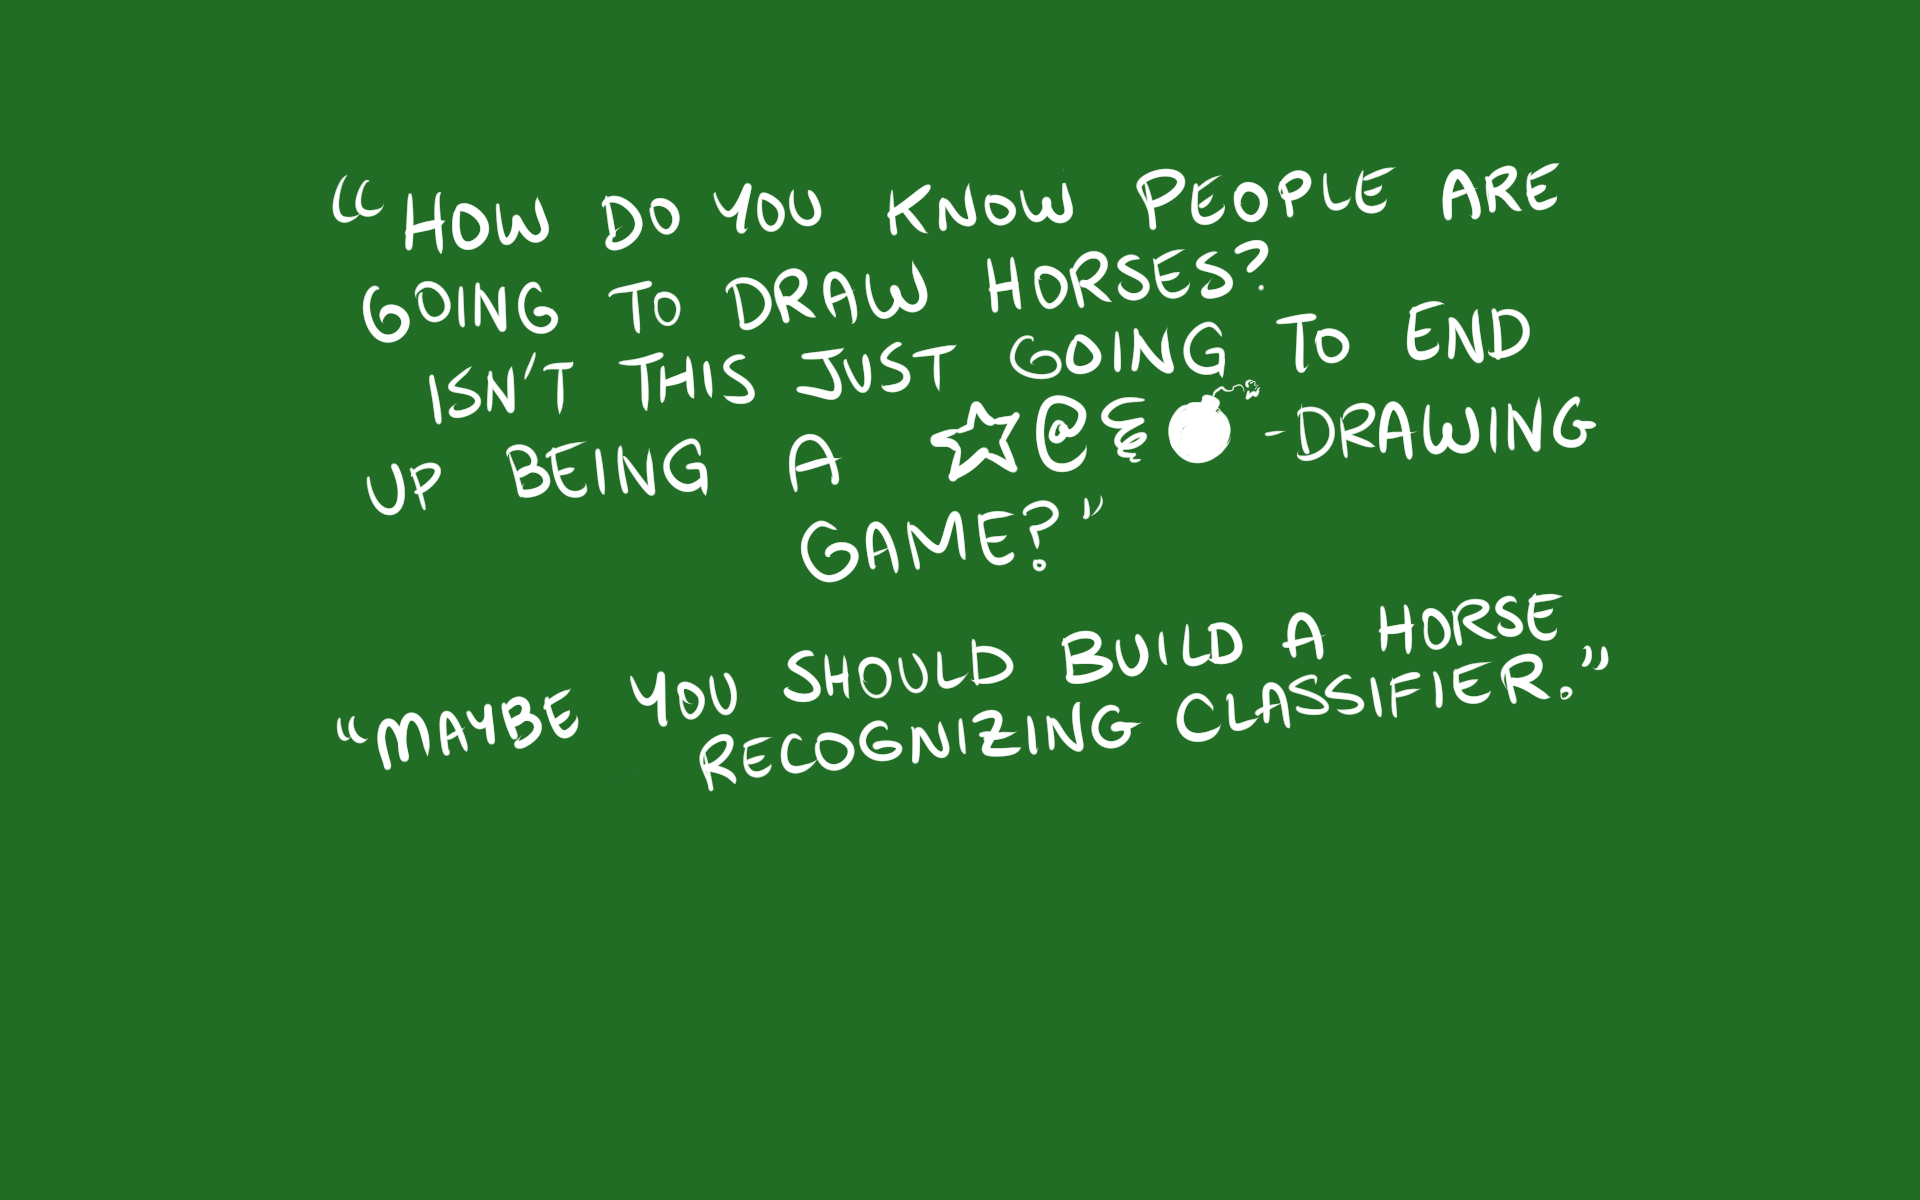 “HOW DO YOU KNOW PEOPLE ARE
GOING TO DRAW HORSES?
ISN'T THIS JUST GOING TO END
UP BEING A ☆@§💣-DRAWING
GAME?”
“MAYBE YOU SHOULD BUILD A HORSE
RECOGNIZING CLASSIFIER.”